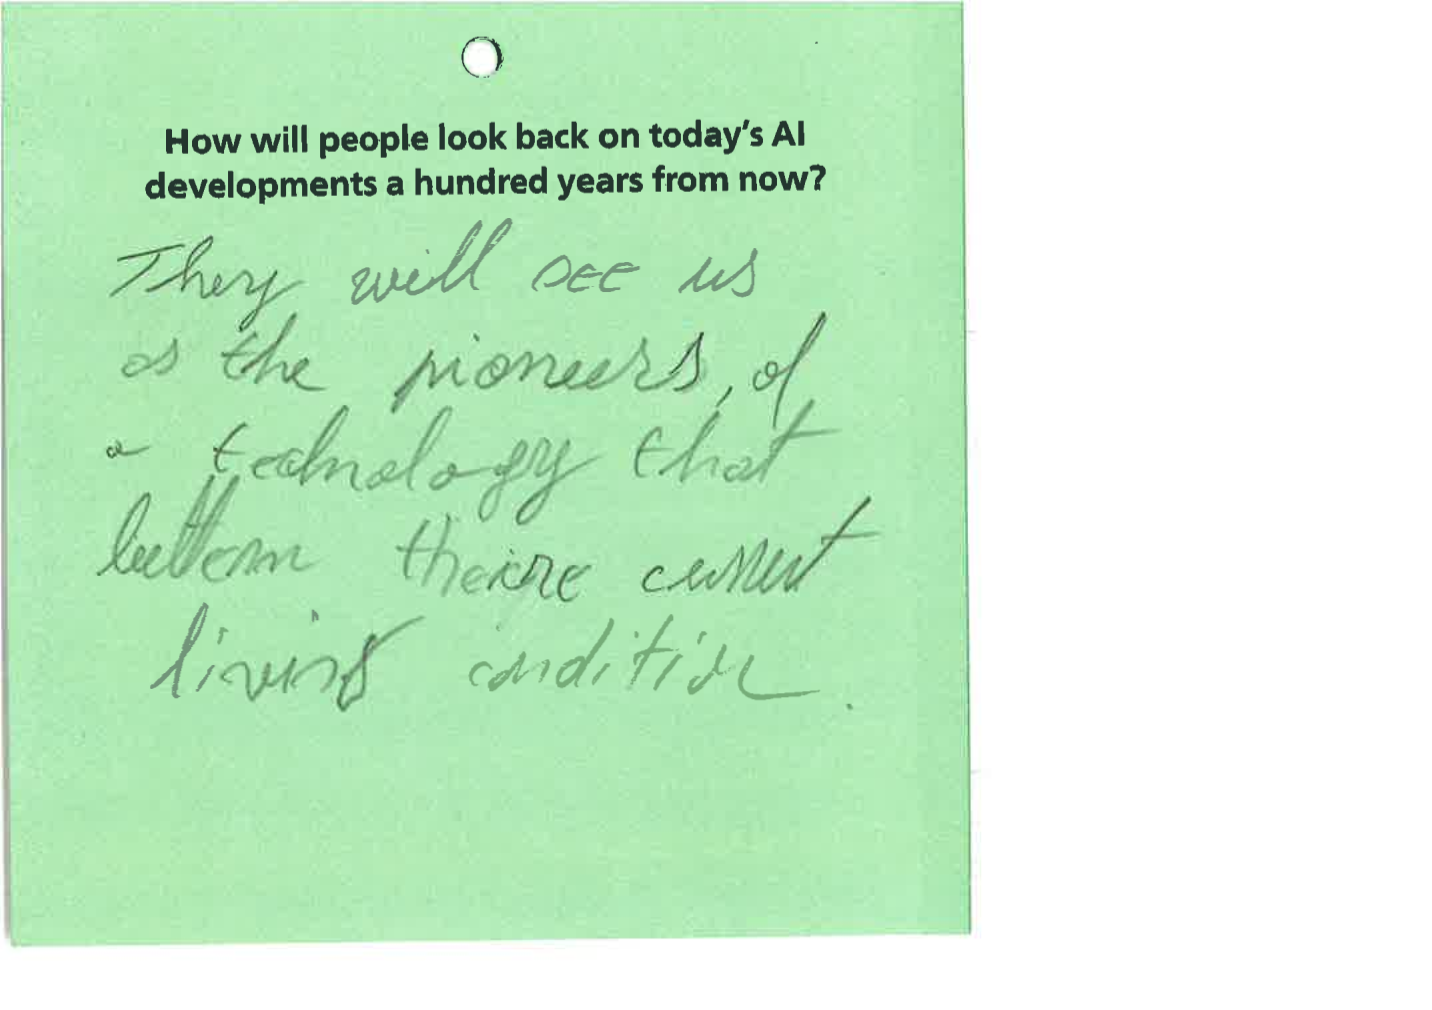 How will people look back on today's AI
developments a hundred years from now?
They will see us
as the pioneers, of
a technology that
bettern theire current
living condition.